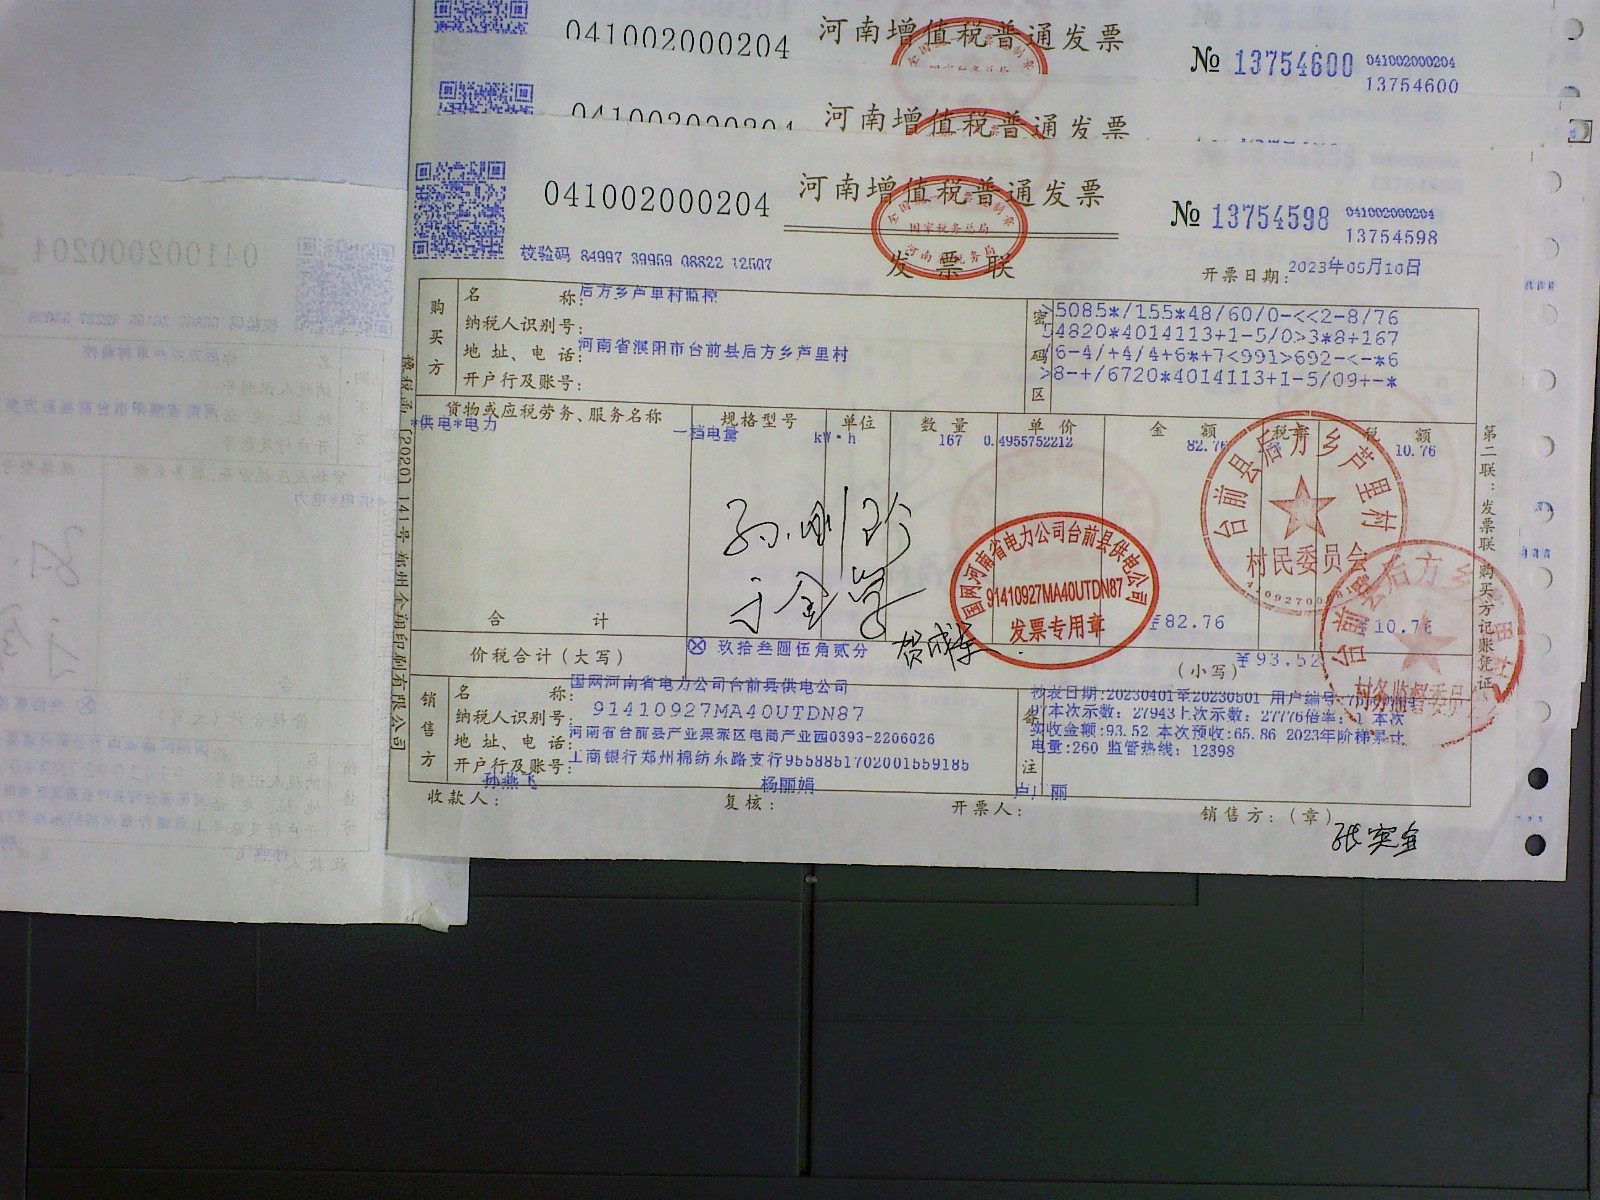 041002000204
河南增值税普通发票
№ 13754600
041002000204
13754600
河南增值税普通发票
041002000204
河南增值税普通发票
发票联
№ 13754598
041002000204
13754598
校验码 84997 39959 08822 12507
开票日期: 2023年05月10日
购买方
名 称: 后方乡芦里村监控
纳税人识别号:
地址、电话: 河南省濮阳市台前县后方乡芦里村
开户行及账号:
密码区
>5085*/155*48/60/0-<<2-8/76
54820*4014113+1-5/0>3*8+167
/6-4/+4/4+6*+7<991>692-<-*6
>8-+/6720*4014113+1-5/09+-*
货物或应税劳务、服务名称 规格型号 单位 数量 单价 金额 税率 税额
*供电*电力 一档电量 kW·h 167 0.4955752212 82.76 10.76
合 计 ¥82.76 ¥10.76
价税合计(大写) ⊗ 玖拾叁圆伍角贰分 (小写) ¥93.52
销售方
名 称: 国网河南省电力公司台前县供电公司
纳税人识别号: 91410927MA40UTDN87
地址、电话: 河南省台前县产业集聚区电商产业园0393-2206026
开户行及账号: 工商银行郑州棉纺东路支行9558851702001559185
备注
抄表日期:20230401至20230501 用户编号:
本次示数: 27943上次示数: 27776倍率: 1 本次
实收金额:93.52 本次预收:65.86 2023年阶梯累计
电量:260 监管热线: 12398
收款人: 孙燕飞
复核: 杨丽娟
开票人:
销售方:(章)
第二联:发票联 购买方记账凭证
国网河南省电力公司台前县供电公司
91410927MA40UTDN87
发票专用章
台前县后方乡芦里村
村民委员会
台前县后方乡
村务监督委员